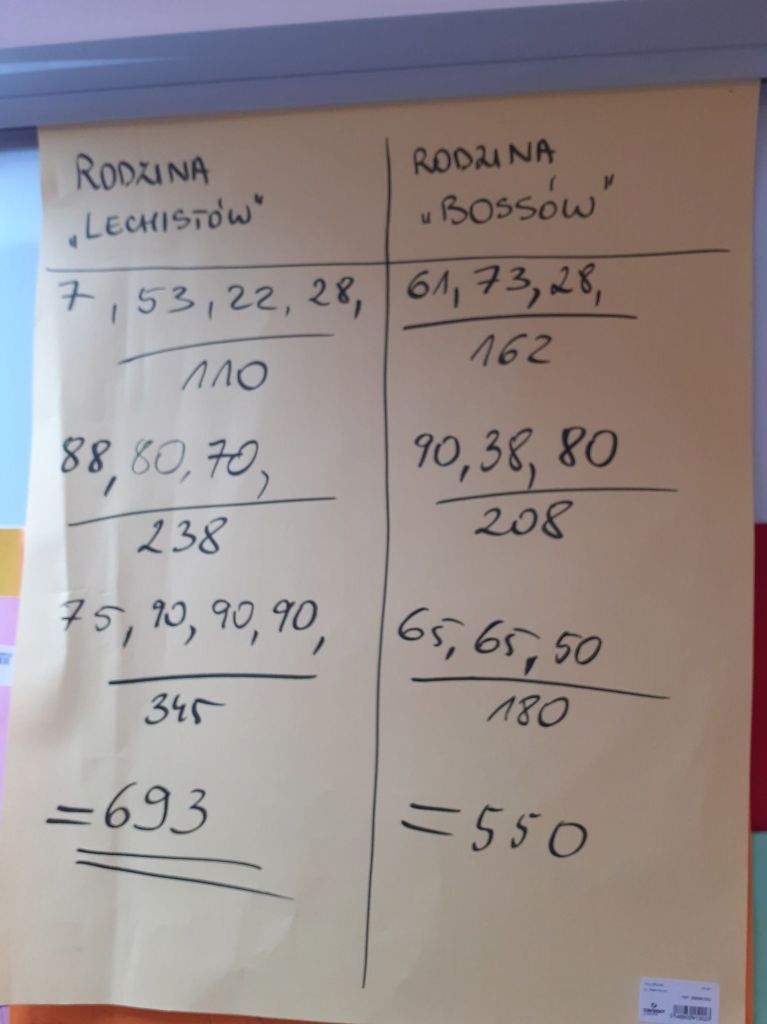 RODZINA
„LECHISTÓW"
7, 53, 22, 28,
110
88, 80, 70,
238
75, 90, 90, 90,
345
=693
RODZINA
„BOSSÓW"
61, 73, 28,
162
90, 38, 80
208
65, 65, 50
180
=550